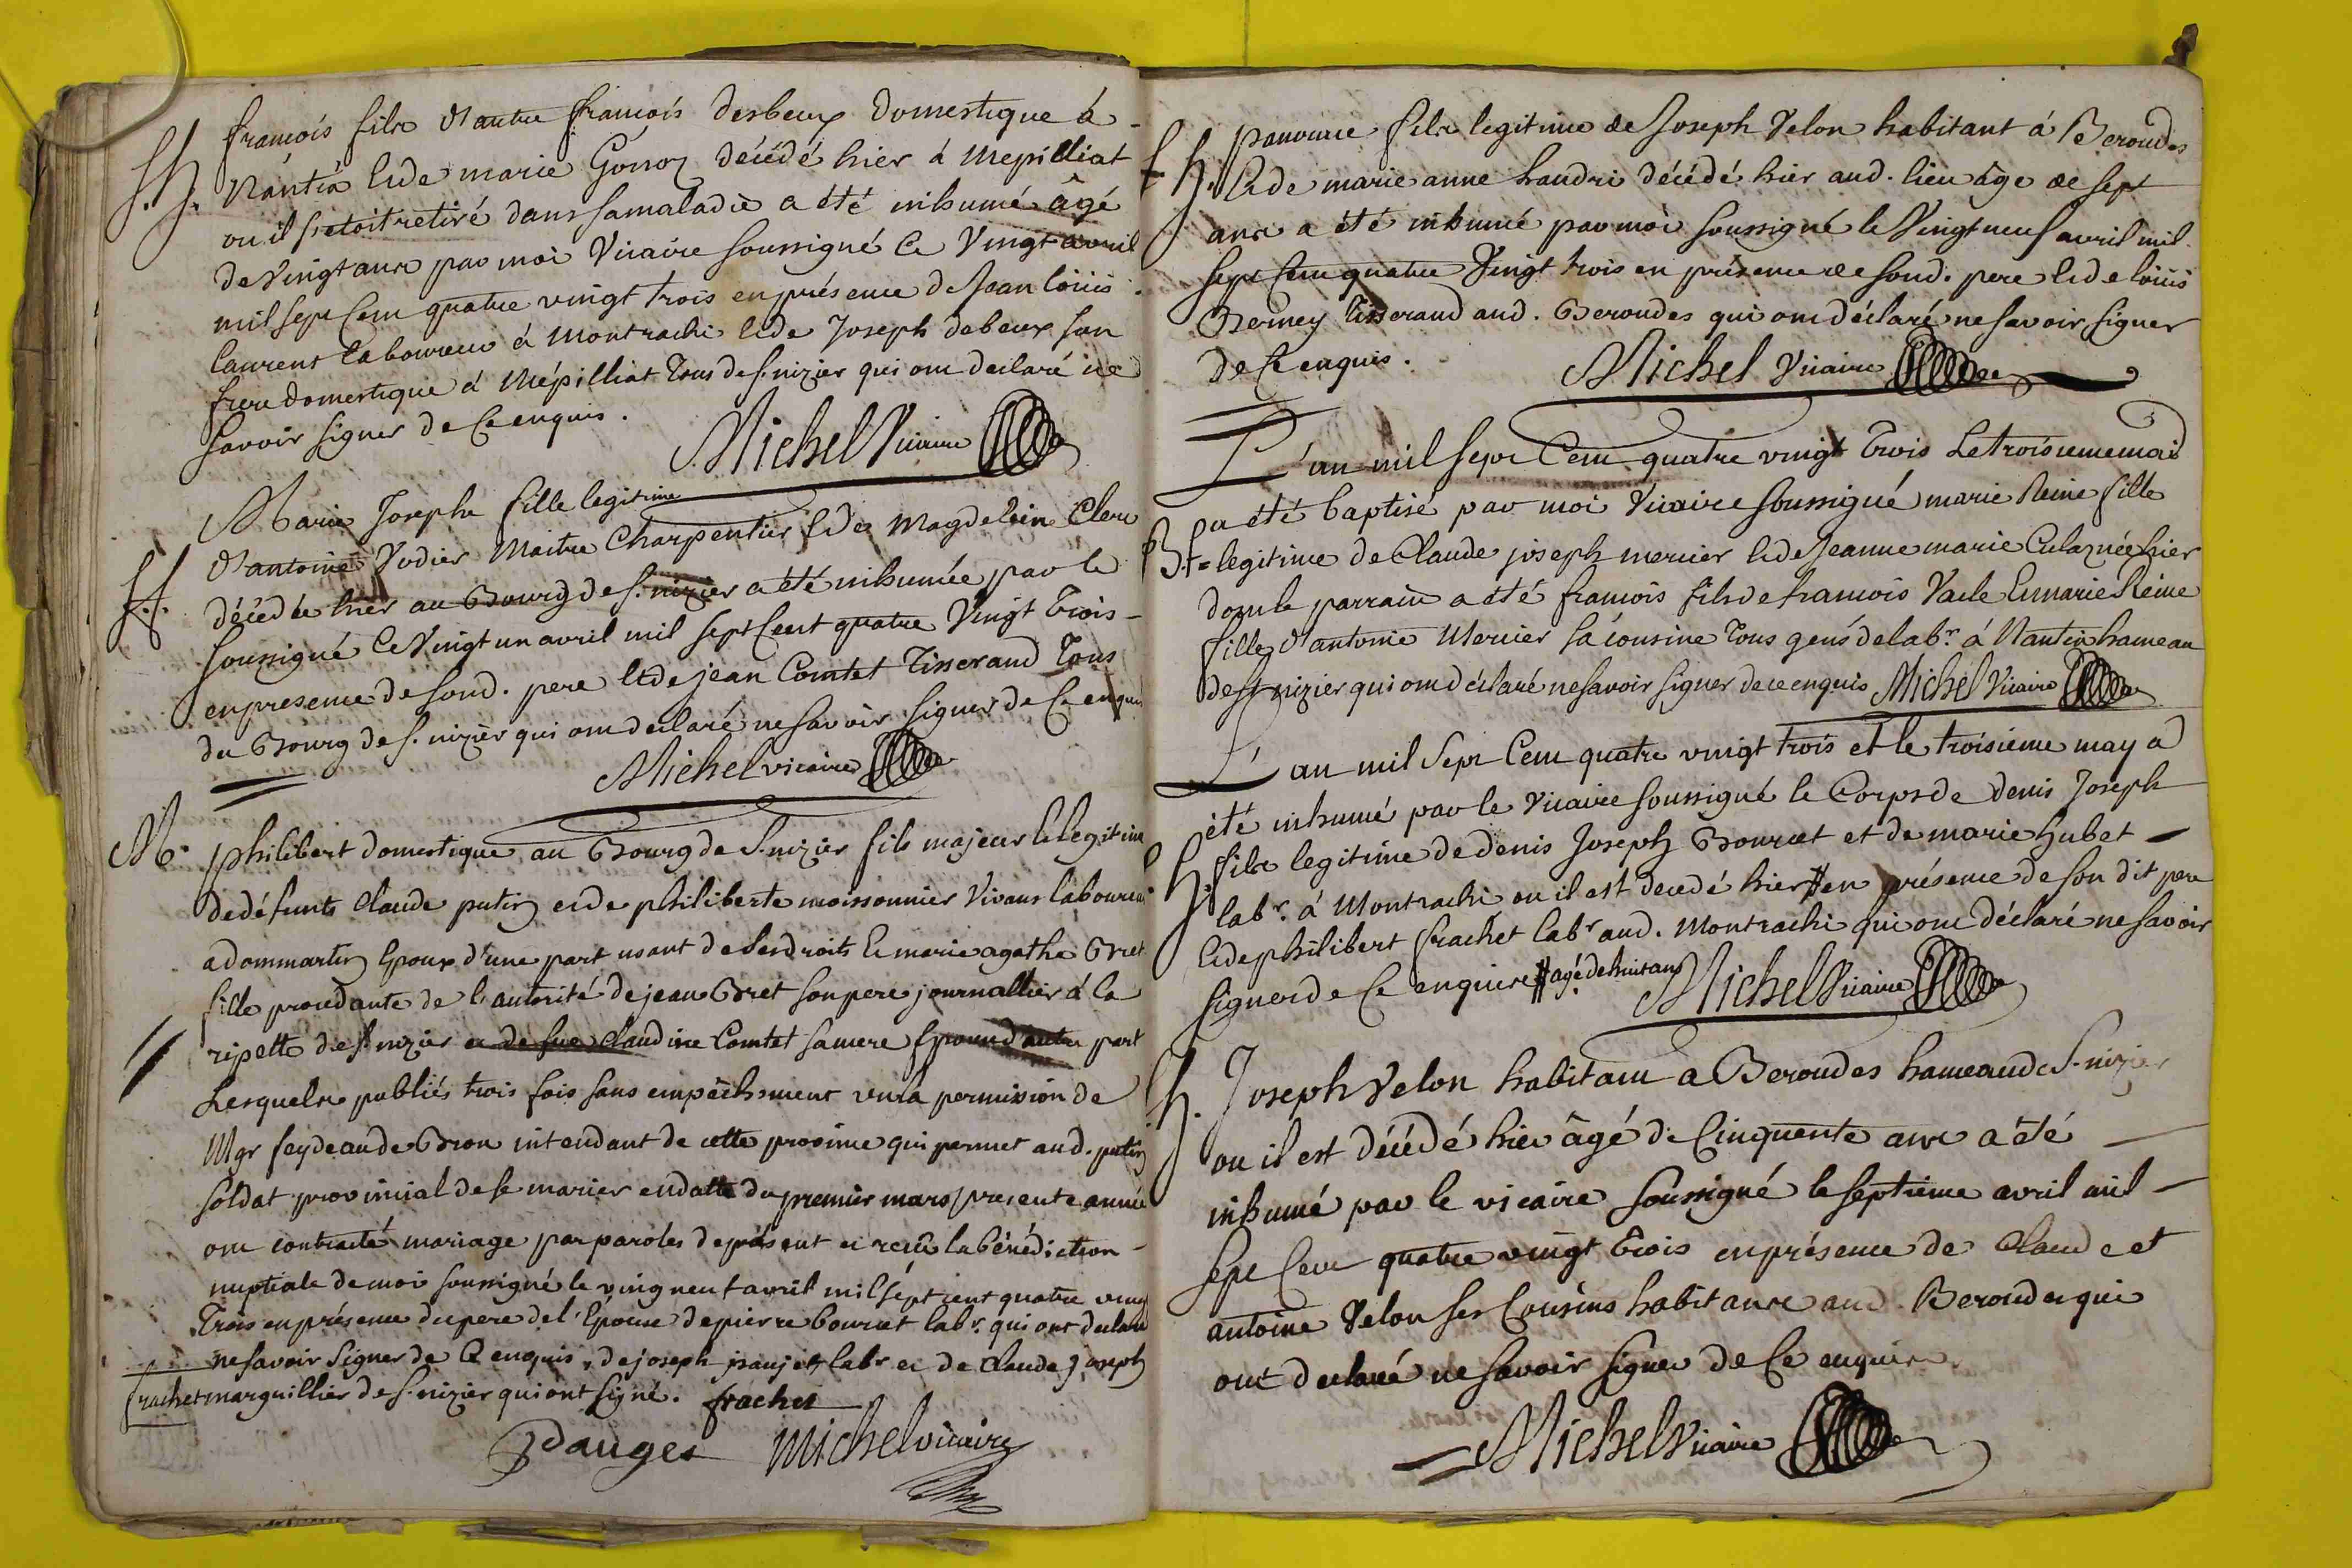 françois fils d'autre françois desbeux domestique à
S.h. Nantua & de marie Gonor décédé hier à Mepilliat
ou il s'etoit retiré dans sa maladie a été inhumé âgé
de Vingt ans par moi Vicaire soussigné le Vingt avril
mil sept cent quatre vingt trois en présence de Jean loüis
laurent laboureur à Montrachi & de Joseph debeux son
frere domestique à Mépilliat tous de s. nizier qui ont declaré ne
savoir signer de ce enquis.
Michel Vicaire
Marie Josephe fille legitime
S.f. d'antoine Vudier Maitre Charpentier & de Magdeleine Clerc
décédée hier au Bourg de s. nizier a été inhumée par le
soussigné le Vingt un avril mil sept Cent quatre Vingt trois
en presence de sond. pere & de jean Comtet Tisserand tous
du Bourg de s. nizier qui ont declaré ne savoir signer de ce enquis
Michel vicaire
M. philibert domestique au Bourg de s. nizier fils majeur & legitime
de défunts Claude putin et de philiberte moissonnier Vivans laboureurs
a dommartin Epoux d'une part usant de ses droits & marie agathe Bret
fille procédante de l'autorité de jean Bret son pere journallier à la
ripette de s. nizier et de feue Claudine Comtet sa mere Epouse d'autre part
Lesquels publiés trois fois sans empêchement vu la permission de
Mgr feydeau de Brou intendant de cette province qui permet aud. putin
soldat provincial de se marier en datte du premier mars presente année
ont contracté mariage par paroles de présent et recû la bénédiction
nuptiale de moi soussigné le vingneuf avril mil sept cent quatre vingt
Trois en présence du pere de l'Epouse de pierre bourcet labr. qui ont declaré
ne savoir signer de ce enquis, de joseph labr et de Claude joseph
frachet marguillier de s. nizier qui ont signé. frachet
Michel vicaire
fils legitime de Joseph Velon habitant à Beroudes
S.h. & de marie anne handri décédé hier aud. lieu âgé de sept
ans a été inhumé par moi soussigné le Vingt neuf avril mil
sept Cent quatre Vingt trois en présence de sond. pere & de loüis
Berney Tisserand aud. Beroudes qui ont déclaré ne savoir signer
de ce enquis. Michel Vicaire
L'an mil sept Cent quatre vingt trois Le troisieme mai
a été baptisé par moi Vicaire soussigné marie Reine fille
B.f. legitime de Claude joseph mercier & de Jeanne marie Culaz née hier
dont le parrain a été françois fils de francois Vacle & marie Reine
fille d'antonie Mercier sa cousine tous gens de labr. à Nantin hameau
de st nizier qui ont déclaré ne savoir signer de ce enquis Michel Vicaire
L'an mil sept Cent quatre vingt trois et le troisieme may a
été inhumé par le Vicaire soussigné le Corps de denis Joseph
S.h. fils legitime de denis Joseph Bourcet et de marie hubet
labr. à Montrachi ou il est decedé hier # en présence de son dit pere
& de philibert frachet labr aud. Montrachi qui ont déclaré ne savoir
signer de Ce enquis # agé de huit ans Michel Vicaire
S.h. Joseph Velon habitant a Beroudes hameau de s. nizier
ou il est décédé hier âgé de Cinquente ans a été
inhumé par le vicaire soussigné le septieme avril mil
sept Cent quatre vingt trois en présence de Claude et
antoine Velon ses Cousins habitans aud. Beroudes qui
ont declaré ne savoir signer de Ce enquis.
Michel Vicaire